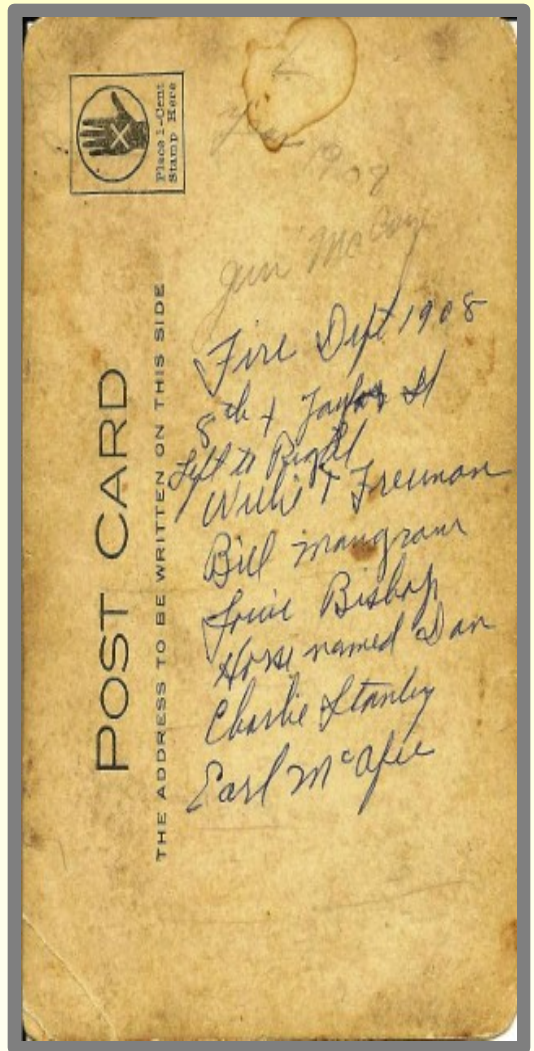 Place 1-Cent
Stamp Here
POST CARD
THE ADDRESS TO BE WRITTEN ON THIS SIDE
1908
Jim McCoy
Fire Dept 1908
8th + Taylor St
Left to Right
Willie T Freeman
Bill Mangram
Louie Bishop
Horse named Dan
Charlie Stanley
Earl McAfee